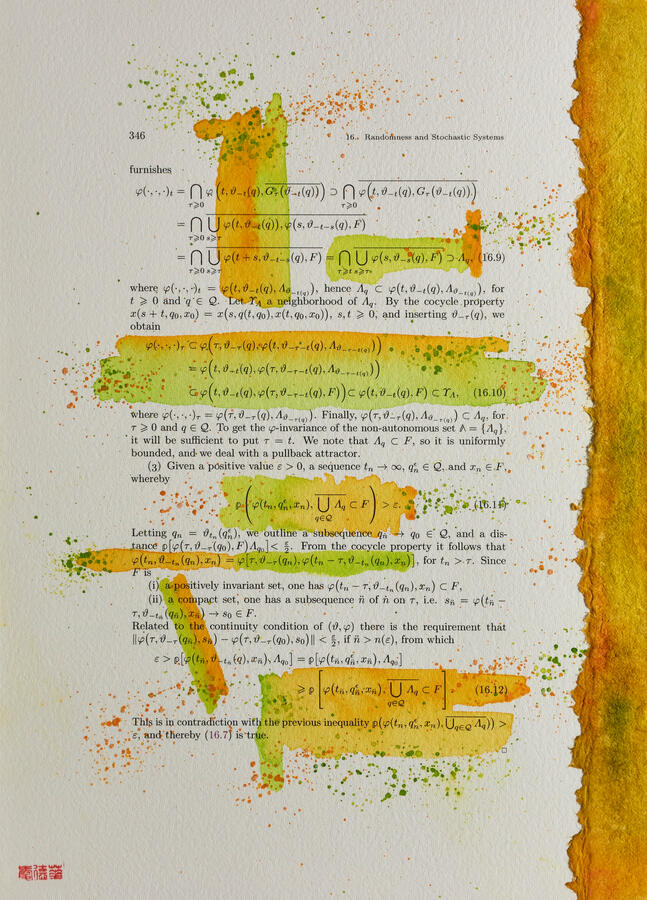 346 16. Randomness and Stochastic Systems
furnishes
φ(·,·,·)ₜ = ⋂_{τ⩾0} φ(t, ϑ₋ₜ(q), \overline{G_τ(ϑ₋ₜ(q))}) ⊃ ⋂_{τ⩾0} \overline{φ(t, ϑ₋ₜ(q), G_τ(ϑ₋ₜ(q)))}
= ⋂_{τ⩾0} \overline{⋃_{s⩾τ} φ(t, ϑ₋ₜ(q)), φ(s, ϑ_{−t−s}(q), F)}
= ⋂_{τ⩾0} \overline{⋃_{s⩾τ} φ(t + s, ϑ_{−t−s}(q), F)} = ⋂_{τ⩾t} \overline{⋃_{s⩾τ} φ(s, ϑ_{−s}(q), F)} ⊃ Λ_q, (16.9)
where φ(·,·,·)ₜ = φ(t, ϑ₋ₜ(q), Λ_{ϑ₋ₜ(q)}), hence Λ_q ⊂ φ(t, ϑ₋ₜ(q), Λ_{ϑ₋ₜ(q)}), for
t ⩾ 0 and q ∈ Q. Let ϒ_Λ a neighborhood of Λ_q. By the cocycle property
x(s + t, q₀, x₀) = x(s, q(t, q₀), x(t, q₀, x₀)), s, t ⩾ 0, and inserting ϑ_{−τ}(q), we
obtain
φ(·,·,·)_τ ⊂ φ(τ, ϑ_{−τ}(q), φ(t, ϑ_{−τ−t}(q), Λ_{ϑ_{−τ−t}(q)}))
= φ(t, ϑ₋ₜ(q), φ(τ, ϑ_{−τ−t}(q), Λ_{ϑ_{−τ−t}(q)}))
⊂ φ(t, ϑ₋ₜ(q), φ(τ, ϑ_{−τ−t}(q), F)) ⊂ φ(t, ϑ₋ₜ(q), F) ⊂ ϒ_Λ, (16.10)
where φ(·,·,·)_τ = φ(τ, ϑ_{−τ}(q), Λ_{ϑ_{−τ}(q)}). Finally, φ(τ, ϑ_{−τ}(q), Λ_{ϑ_{−τ}(q)}) ⊂ Λ_q, for
τ ⩾ 0 and q ∈ Q. To get the φ-invariance of the non-autonomous set Λ = {Λ_q},
it will be sufficient to put τ = t. We note that Λ_q ⊂ F, so it is uniformly
bounded, and we deal with a pullback attractor.
(3) Given a positive value ε > 0, a sequence tₙ → ∞, qₙ^ε ∈ Q, and xₙ ∈ F,
whereby
p(φ(tₙ, qₙ^ε, xₙ), \overline{⋃_{q∈Q} Λ_q} ⊂ F) > ε. (16.11)
Letting qₙ = ϑ_{tₙ}(qₙ^ε), we outline a subsequence q_ñ → q₀ ∈ Q, and a dis-
tance p[φ(τ, ϑ_{−τ}(q₀), F)Λ_{q₀}] < ε/2. From the cocycle property it follows that
φ(tₙ, ϑ_{−tₙ}(qₙ), xₙ) = φ[τ, ϑ_{−τ}(qₙ), φ(tₙ − τ, ϑ_{−tₙ}(qₙ), xₙ)], for tₙ > τ. Since
F is
(i) a positively invariant set, one has φ(tₙ − τ, ϑ_{−tₙ}(qₙ), xₙ) ⊂ F,
(ii) a compact set, one has a subsequence ñ of ṅ on τ, i.e. s_ñ = φ(t_ñ −
τ, ϑ_{−t_ñ}(q_ñ), x_ñ) → s₀ ∈ F.
Related to the continuity condition of (ϑ, φ) there is the requirement that
‖φ(τ, ϑ_{−τ}(q_ñ), s_ñ) − φ(τ, ϑ_{−τ}(q₀), s₀)‖ < ε/2, if ñ > n(ε), from which
ε > p[φ(t_ñ, ϑ_{−tₙ}(q), x_ñ), Λ_{q₀}] = p[φ(t_ñ, q_ñ^ε, x_ñ), Λ_{q₀}]
⩾ p[φ(t_ñ, q_ñ^ε, x_ñ), \overline{⋃_{q∈Q} Λ_q} ⊂ F] (16.12)
This is in contradiction with the previous inequality p(φ(tₙ, qₙ^ε, xₙ), \overline{⋃_{q∈Q} Λ_q})) >
ε, and thereby (16.7) is true.
□